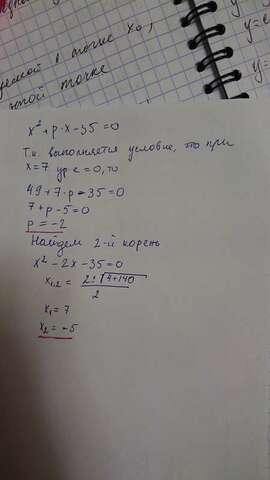 в точке x₀,
точке
x² + p · x - 35 = 0
Т.к. выполняется условие, что при
x = 7 ур-е = 0, то
49 + 7 · p - 35 = 0
7 + p - 5 = 0
p = -2
Найдем 2-й корень
x² - 2x - 35 = 0
x₁,₂ = (2 ± √(4+140)) / 2
x₁ = 7
x₂ = -5